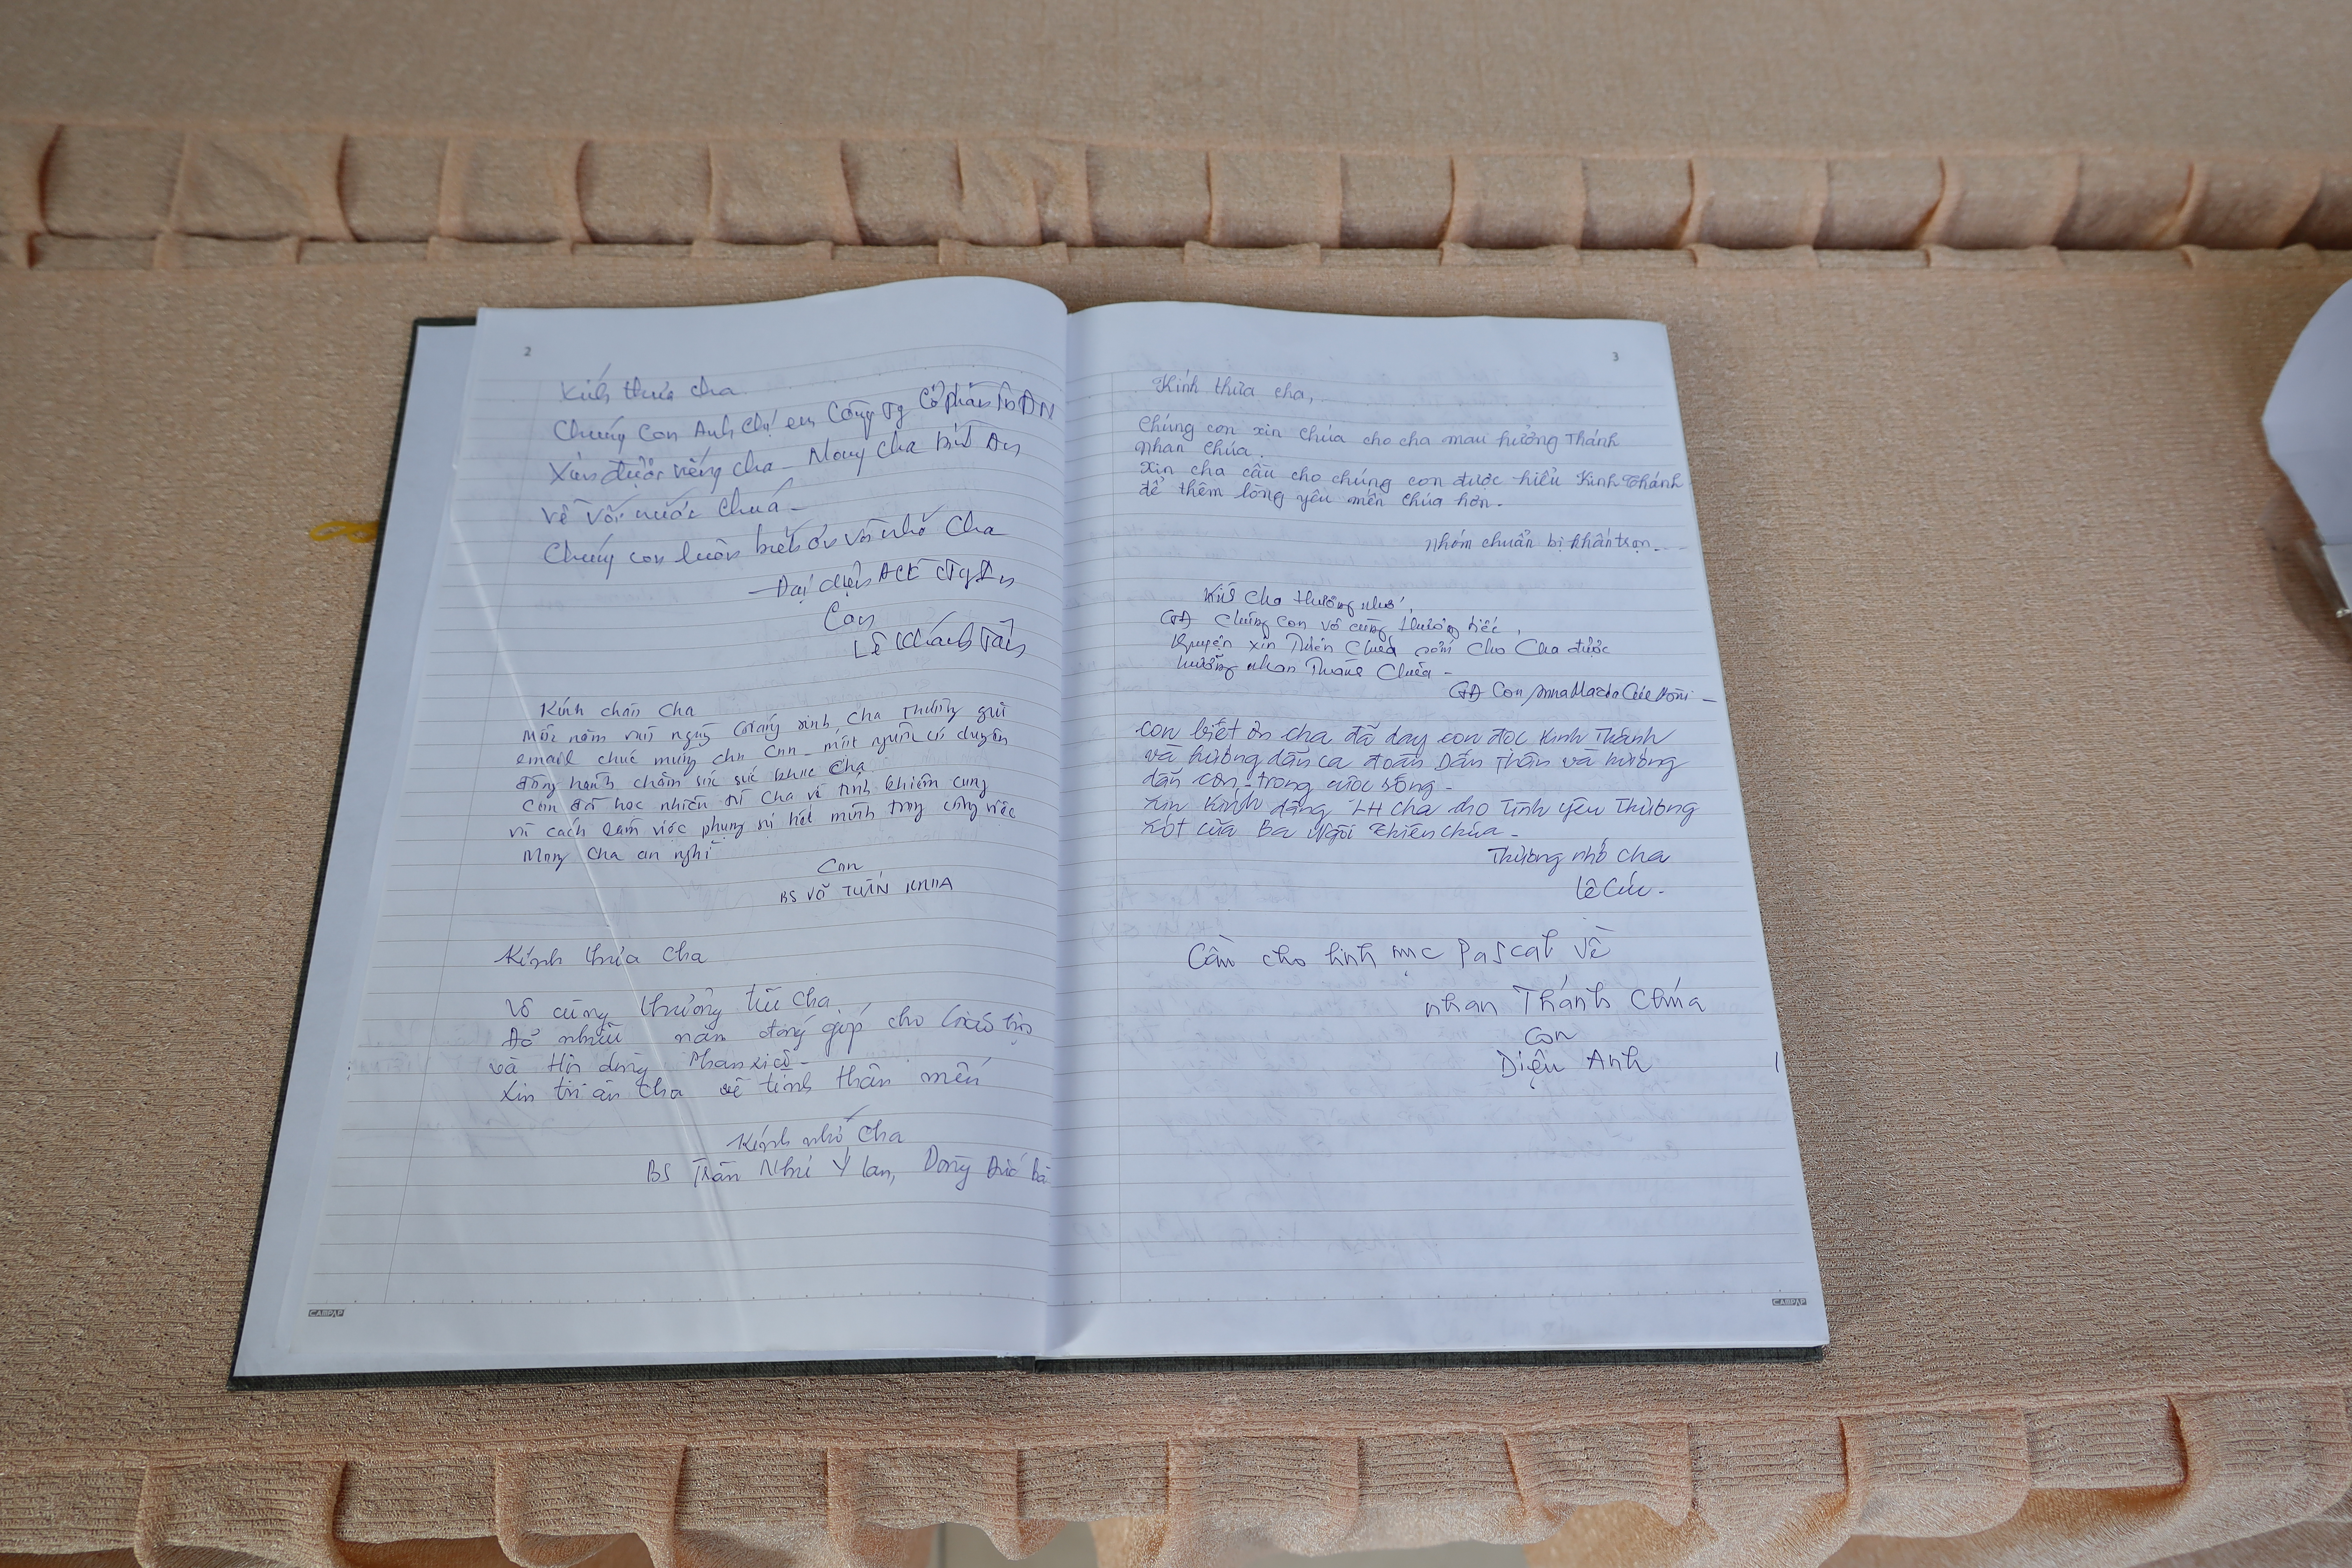 2
Kính thưa cha
Chúng con Anh chị em Công ty Cổ phần
Xin được viếng cha - Mong cha bình An
về với nước Chúa -
Chúng con luôn biết ơn và nhớ Cha
- Đại diện ACE
Con
Lê Khánh Tân
Kính chào Cha
Mỗi năm vào ngày Giáng sinh, Cha thường gửi
email chúc mừng cho con - một người có duyên
đồng hành chăm sóc sức khỏe Cha
Con đã học nhiều từ Cha về tính khiêm cung
và cách làm việc phụng sự hết mình trong công việc
Mong Cha an nghỉ
Con
BS VÕ TUẤN KHOA
Kính thưa Cha
Vô cùng thương tiếc Cha
Đã nhiều năm đóng góp cho Giáo
và Hội dòng Phanxicô -
Xin tri ân Cha về tình thân mến
Kính nhớ Cha
BS Trần Như Ý Lan, Dòng Đức Bà
3
Kính thưa cha,
Chúng con xin Chúa cho cha mau hưởng Thánh
nhan Chúa.
Xin cha cầu cho chúng con được hiểu Kinh Thánh
để thêm lòng yêu mến Chúa hơn.
Nhóm chuẩn bị khấn trọn.
Kính Cha thương nhớ,
GĐ chúng con vô cùng thương tiếc,
Nguyện xin Thiên Chúa sớm cho Cha được
hưởng nhan Thánh Chúa -
GĐ Con Anna Maria Cúc
con biết ơn cha đã dạy con đọc Kinh Thánh
và hướng dẫn ca đoàn Dấn Thân và hướng
dẫn con trong cuộc sống.
Xin kính dâng LH cha cho Tình yêu Thương
xót của Ba Ngôi Thiên Chúa -
Thương nhớ cha
Lê Cúc.
Cầu cho linh mục Pascal về
nhan Thánh Chúa
Con
Diệu Anh
CAMPAP
CAMPAP